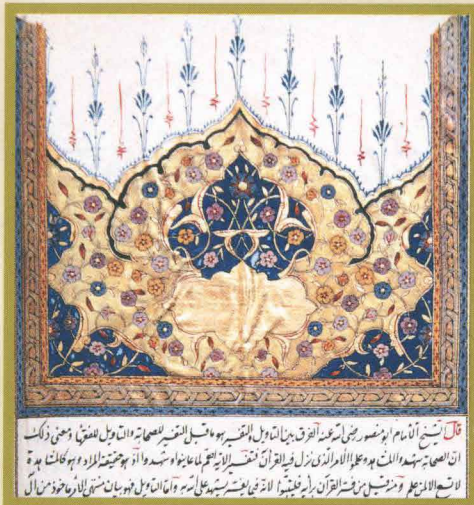 قال الشيخ الامام ابو منصور رضى الله عنه الفرق بين التاويل والتفسير هو ما قيل التفسير للصحابة والتاويل للفقهاء ومعنى ذلك
ان الصحابة شهدوا المشاهد وعلموا الامر الذى نزل فيه القرآن فتفسير الاية لهم لما عاينوا وشهدوا اذ هو حقيقة المراد وهو كالمشاهدة
لا تسع الا لمن علم ومنه قيل من فسر القرآن برايه فليتبوأ لانه فيما يفسر يشهد على الله به واما التاويل فهو بيان منتهى الامر ماخوذ من ال